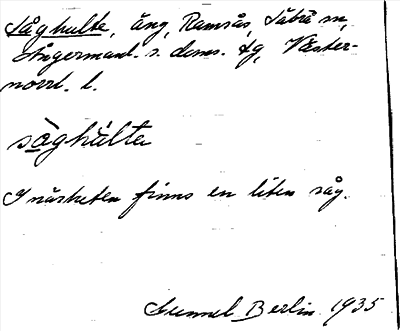 Såghulta, äng, Ramsås, Säbrå sn,
Ångermanl. s. doms. tg, Väster-
norrl. l.
sàghúlta
I närheten finns en liten såg.
Gunnel Berlin 1935